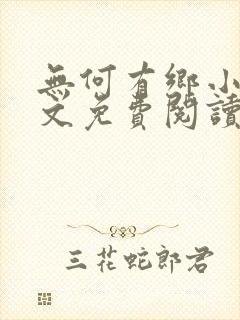 無何有鄉小
文免費閱讀
三花蛇郎君